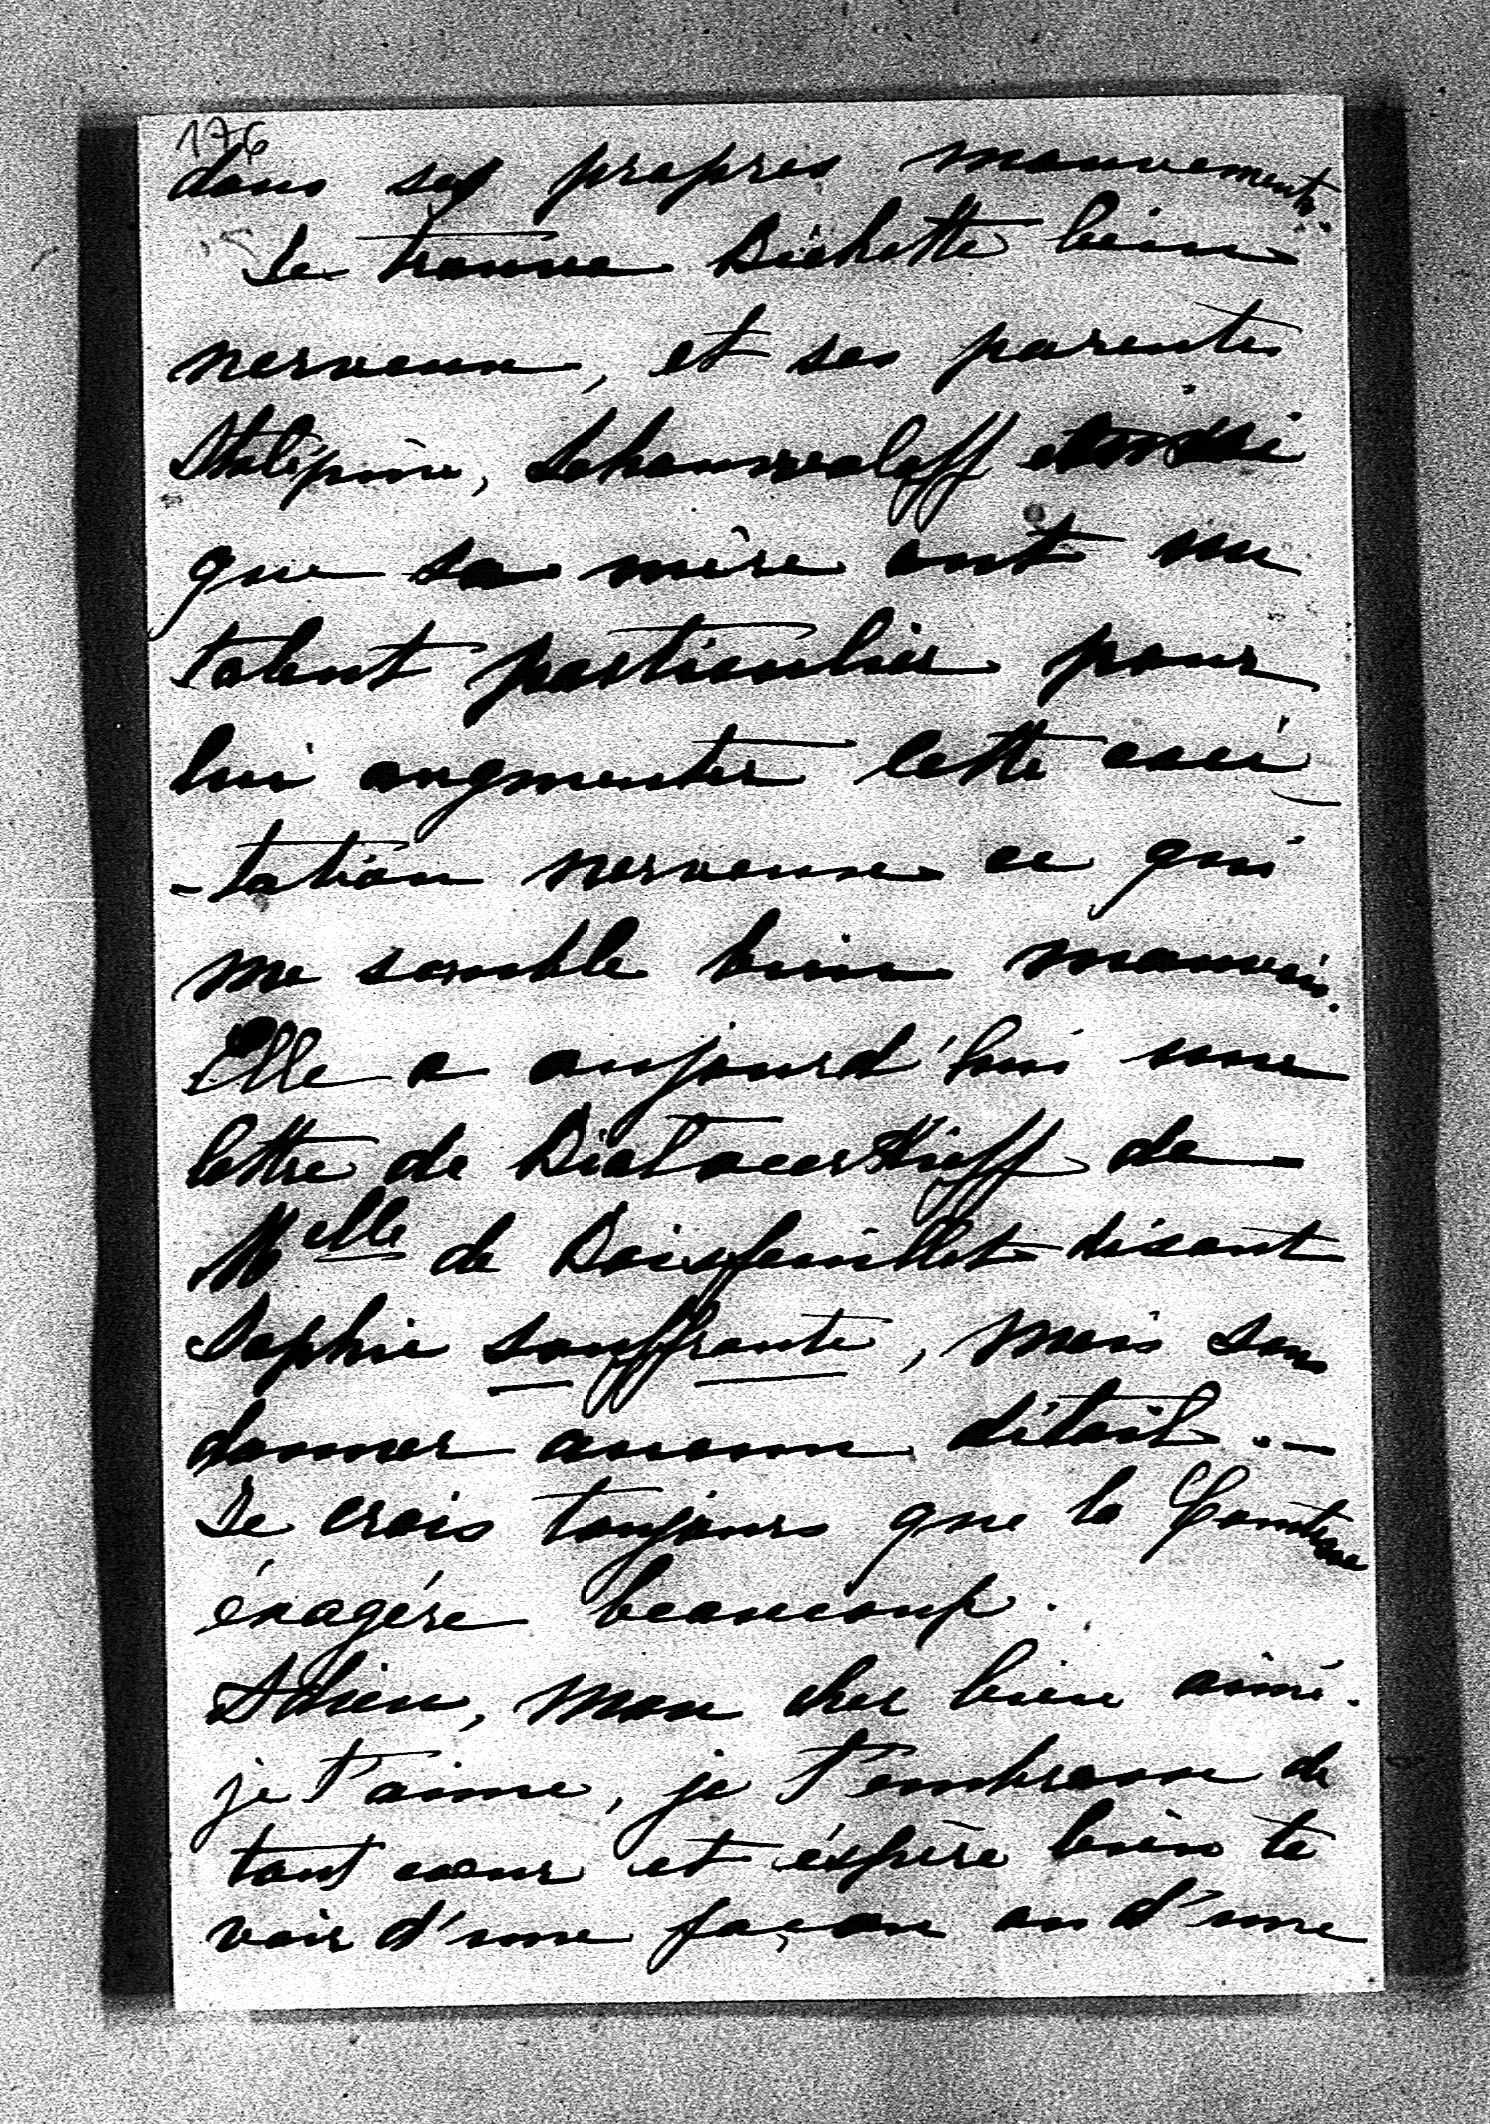 176
dans ses propres mouvements.
Je trouve Bichette bien
nerveuse, et ses parents
Stolipine, Schouwaloff
que sa mère ont un
talent particulier pour
lui augmenter cette exci
-tation nerveuse ce qui
me semble bien mauvais.
Elle a aujourd'hui une
lettre de de
Melle de Boisfeuillet disant
Sophie souffrante, mais sans
donner aucun détail. —
Je crois toujours que la Comtesse
éxagére beaucoup.
Adieu, mon cher bien aimé.
je t'aime, je t'embrasse de
tout cœur et éspère bien te
voir d'une façon ou d'une